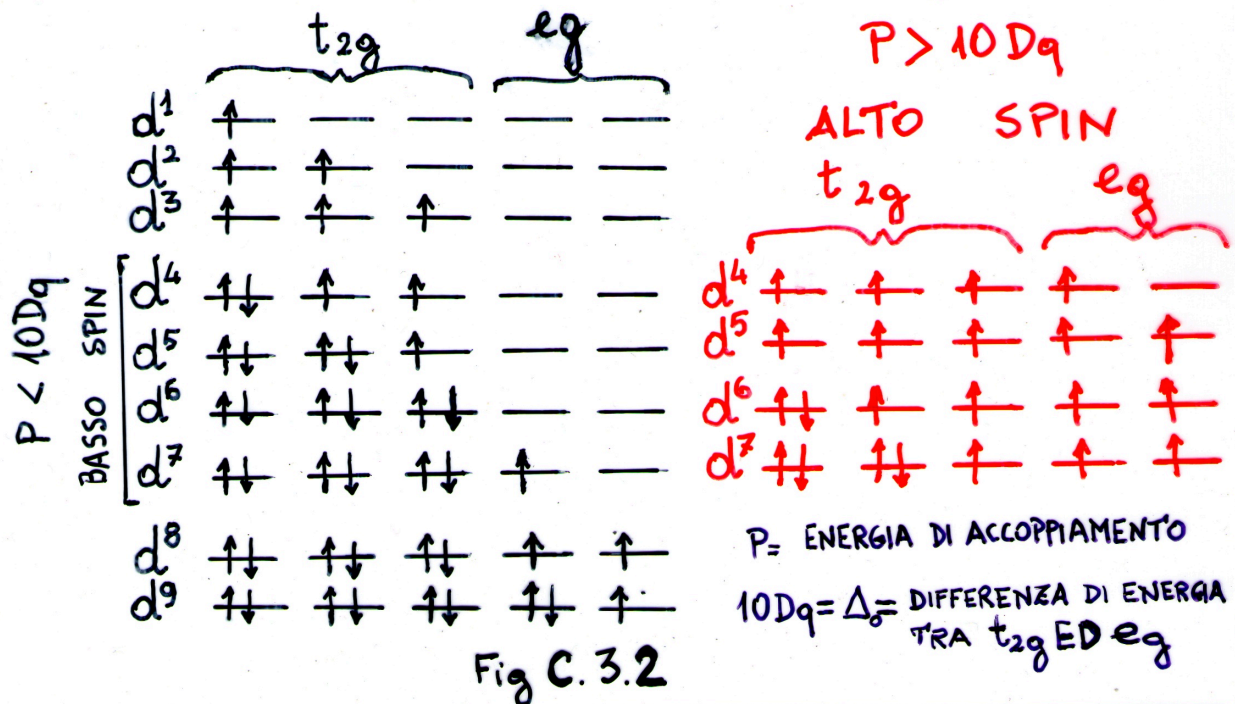 t₂g eg
d¹
d²
d³
P < 10Dq
BASSO SPIN
d⁴
d⁵
d⁶
d⁷
d⁸
d⁹
P > 10Dq
ALTO SPIN
t₂g eg
d⁴
d⁵
d⁶
d⁷
P= ENERGIA DI ACCOPPIAMENTO
10Dq = Δₒ = DIFFERENZA DI ENERGIA
TRA t₂g ED eg
Fig C. 3.2